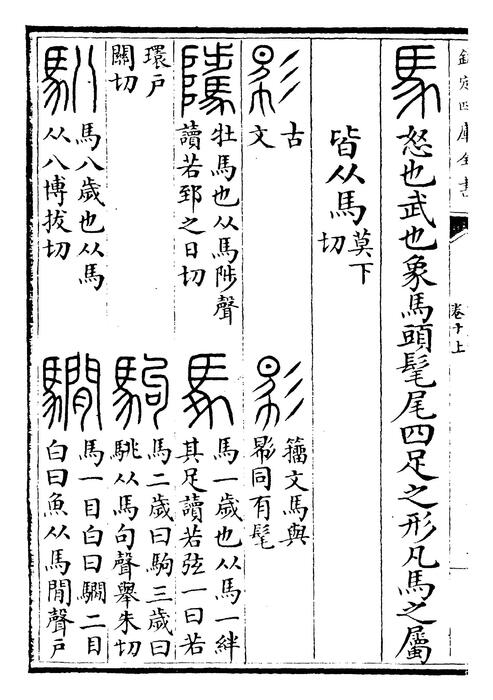 欽定四庫全書
卷十上
馬怒也武也象馬頭髦尾四足之形凡馬之屬
皆从馬莫下
切
𢒠古
文
𢒠籒文馬與
𢒠同有髦
騭牡馬也从馬陟聲
讀若郅之日切
𩡧馬一歲也从馬一絆
其足讀若弦一曰若
環戶
關切
駒馬二歲曰駒三歲曰
駣从馬句聲舉朱切
𩡩馬八歲也从馬
从八博拔切
𩦂馬一目白曰𩦂二目
白曰魚从馬閒聲戶